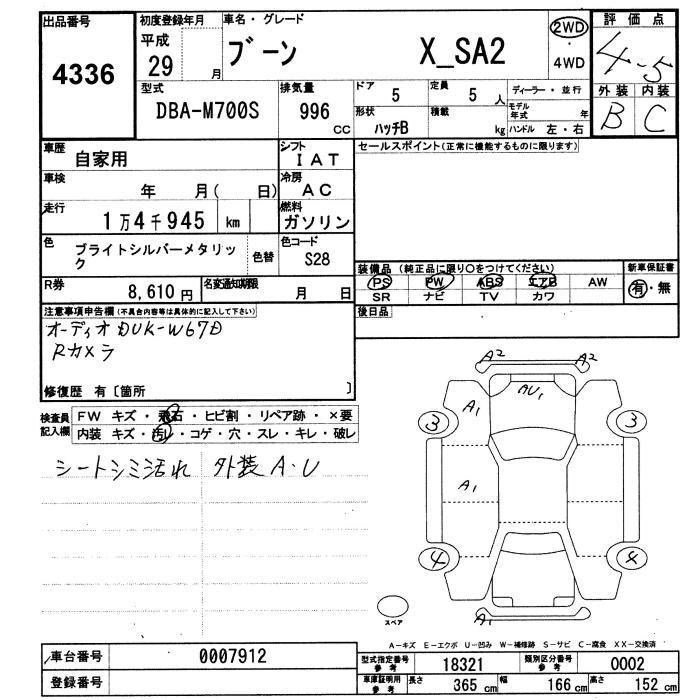 出品番号
4336
初度登録年月
平成
29 月
車名・グレード
ブーン X_SA2
2WD
・
4WD
評価点
4-5
外装 内装
B C
型式
DBA-M700S
排気量
996 CC
ドア
5
定員
5 人
ディーラー・並行
形状
ハッチB
積載
kg
モデル年式 年
ハンドル 左・右
車歴
自家用
シフト
IAT
セールスポイント(正常に機能するものに限ります)
車検
年 月( 日)
冷房
AC
走行
1万4千945 km
燃料
ガソリン
色
ブライトシルバーメタリック
色替
色コード
S28
装備品 (純正品に限り○をつけてください)
新車保証書
PS PW ABS エアB AW
有・無
SR ナビ TV カワ
R券
8,610円
名変通知期限
月 日
後日品
注意事項申告欄(不具合内容等は具体的に記入して下さい)
オーディオDUK-W67D
Rカメラ
修復歴 有〔箇所 〕
検査員記入欄
FW キズ・飛石・ヒビ割・リペア跡・×要
内装 キズ・汚レ・コゲ・穴・スレ・キレ・破レ
シートシミ汚れ 外装A・U
A2 A2
AU1
A1
3 3
A1
4 4
スペア
A1
A-キズ E-エクボ U-凹み W-補修跡 S-サビ C-腐食 XX-交換済
車台番号
0007912
登録番号
型式指定番号
参考
18321
類別区分番号
参考
0002
車庫証明用
参考
長さ 365 cm
幅 166 cm
高さ 152 cm